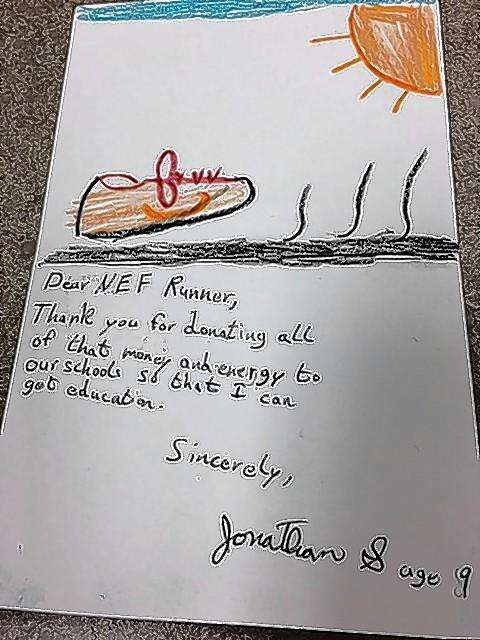 Dear NEF Runner,
Thank you for donating all
of that money and energy to
our schools so that I can
get education.
Sincerely,
Jonathan S age 9